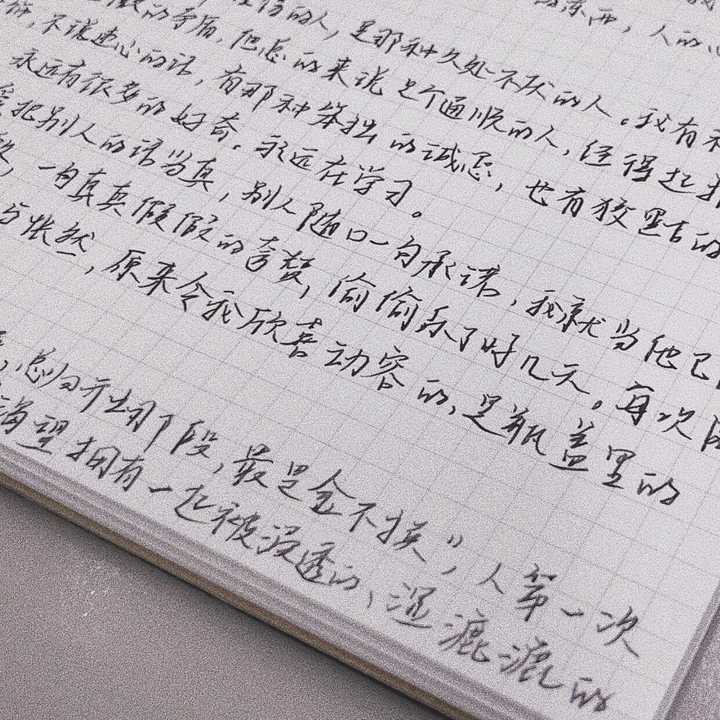 的东西，人的心
的人，是那种久处不厌的人。我有
的矛盾，但总的来说是个通顺的人，经得起
不说违心的话，有那种笨拙的诚恳，也有狡黠的
永远有很多的好奇。永远在学习。
把别人的话当真，别人随口一句承诺，我就当他已
一句真真假假的夸赞，偷偷乐了好几天。再次
与怅然，原来令我欣喜动容的，是瓶盖里的
总归 那段，最是金不换”，人第一次
渴望拥有一起被浸透的、湿漉漉的